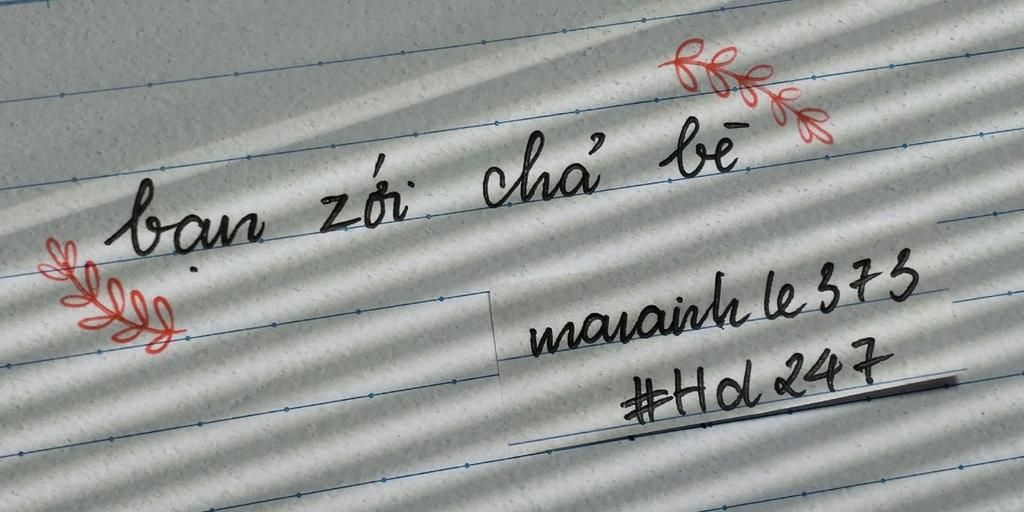 bạn zới chả bè
maiainhle373
#Hd247